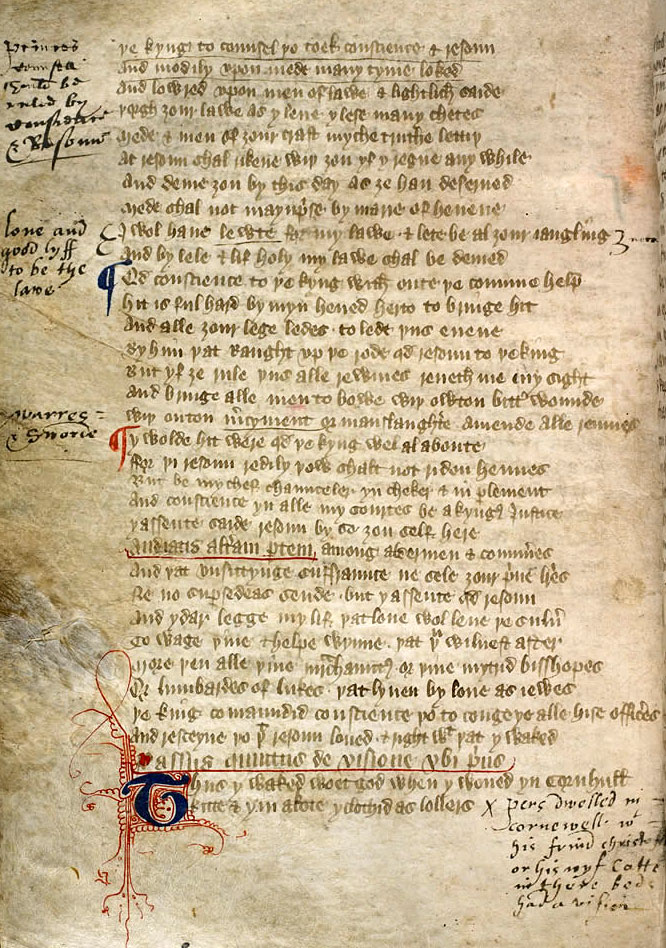 Princes
counsell
should be
ruled by
Conscience
& Resoune
loue and
good lyff
to be the
lawe
warres
& Sworde
þe kyng to counsel þo toek conscience & resoun
And modily vpon mede many tyme loked
And lowred vpon men of lawe & lightlich saide
þorgh ȝour lawe as y leue y lese many chetes
Mede & men of ȝour craft myche truthe lettiþ
At resoun shal rikene wiþ ȝou yf y regne any while
And deme ȝou by this day as ȝe han deserued
Mede shal not maynprise by marie of heuene
I wol haue lewte for my lawe & lete be al ȝour iangling
And by lele & lif holy my lawe shal be demed
Qd conscience to þe kyng with oute þe comune help
hit is ful hard by myn heued herto to bringe hit
And alle ȝour lege ledes to lede þus euene
By him þat raught vp þe rode qd resoun to þe king
But yf ȝe rule þus alle rewmes reueth me my sight
And bringe alle men to bowe wiþ outen bitter wounde
Wiþ outen mercyment or manslaughter amende alle reumes
Y wolde hit were qd þe kyng wel al aboute
For þi resoun redily þow shalt not riden hennes
But be my chef chaunceler yn cheker & in perlement
And conscience yn alle my courtes be a kyngus Justice
Y assente saide resoun by so ȝou self here
Audiatis alteram partem among aldermen & comunes
And þat vnsittynge suffraunce ne sele ȝour priue lettres
Ne no supersedeas sende but y assente qd resoun
And y dar legge my lif þat loue wol lene þe siluer
To wage þine & helpe wynne þat þu wilnest after
More þen alle þine marchauntus or þine mytrid bisshopes
Or lumbardes of lukes þat lyuen by lone as iewes
Þe king comaundid conscience þo to congeye alle hise offices
And resceyue þo þat resoun loued & right with þat y waked
Passus quintus de visione vbi prius
Thus y waked woet god when y woned yn Cornhull
kitte & y in a cote yclothid as lollers
X pers dwelled in
cornewell w
his frind christ
or his wyf Cotte
in there bed
had a vision